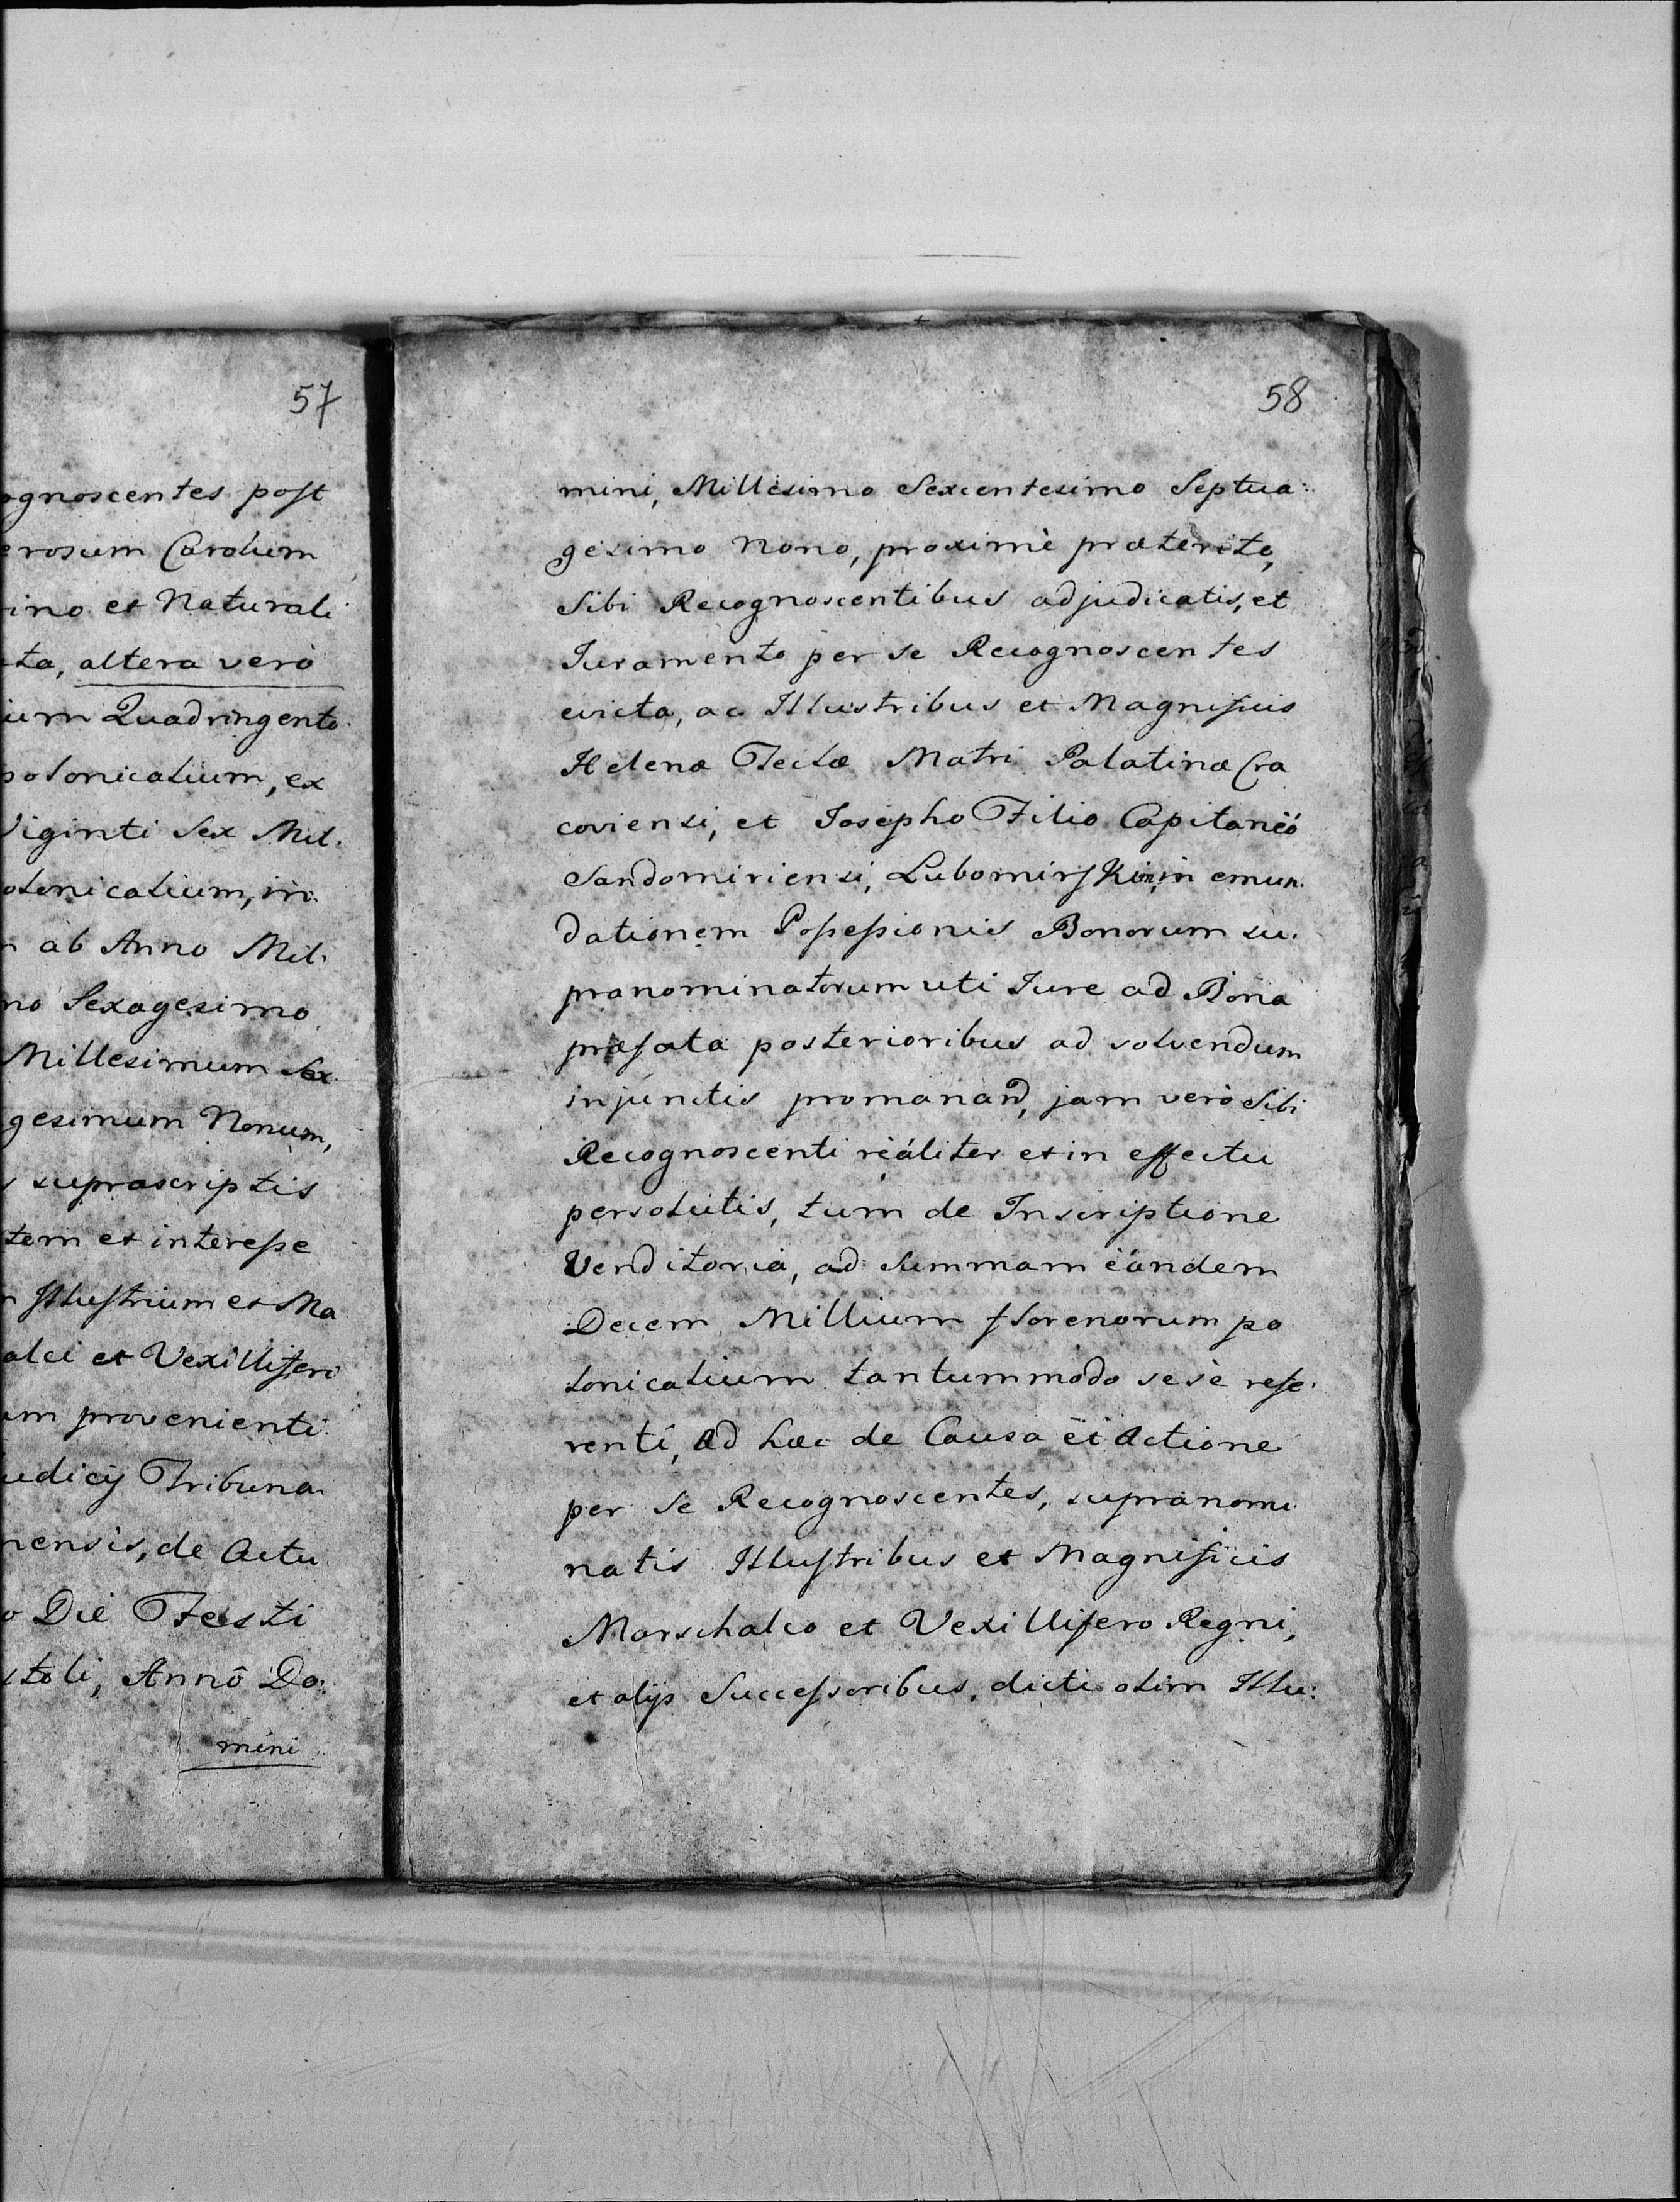 57
ognoscentes post
erosum Carolum
ino et Naturali
ta, altera verò
ium Quadringento
polonicalium, ex
Viginti Sex Mil.
olonicalium, in
ab Anno Mil.
no Sexagesimo
Millesimum Sex.
gesimum Nonum,
suprascriptis
tem et interesse
Illustrium et Ma
alci et Vexilliferi
um provenienti
udicij Tribuna
nensis, de Actu
o Die Festi
stoli, Annô Do:
mini
58
mini, Millesimo Sexcentesimo Septua:
gesimo Nono, proximè præterito,
Sibi Recognoscentibus adjudicatis, et
Juramento per se Recognoscentes
evicta, ac Illustribus et Magnificis
Helenæ Teclæ Matri Palatinæ Cra
coviensi, et Josepho Filio Capitaneo
Sandomiriensi, Lubomirskim, in emun.
dationem Possessionis Bonorum su.
pranominatorum uti Jure ad Bona
præfata posterioribus ad solvendum
injunctis promanand, jam verò Sibi
Recognoscenti reáliter et in effectu
persolutis, tum de Inscriptione
Venditoria, ad Summam eandem
Decem Millium florenorum po
lonicalium tantummodo sesè refe.
renti, Ad hæc de Causa et Actione
per Se Recognoscentes, supranomi
natis Illustribus et Magnificis
Marschalco et Vexillifero Regni,
et alijs Successoribus, dicti olim Illu: